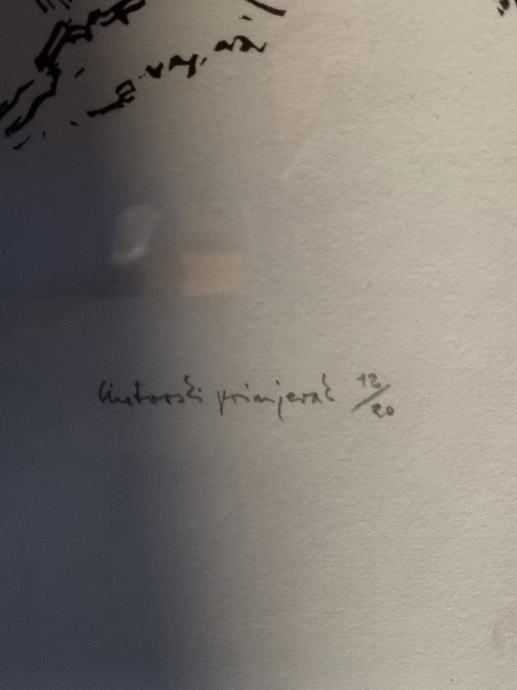 autorski primjerak 12/20